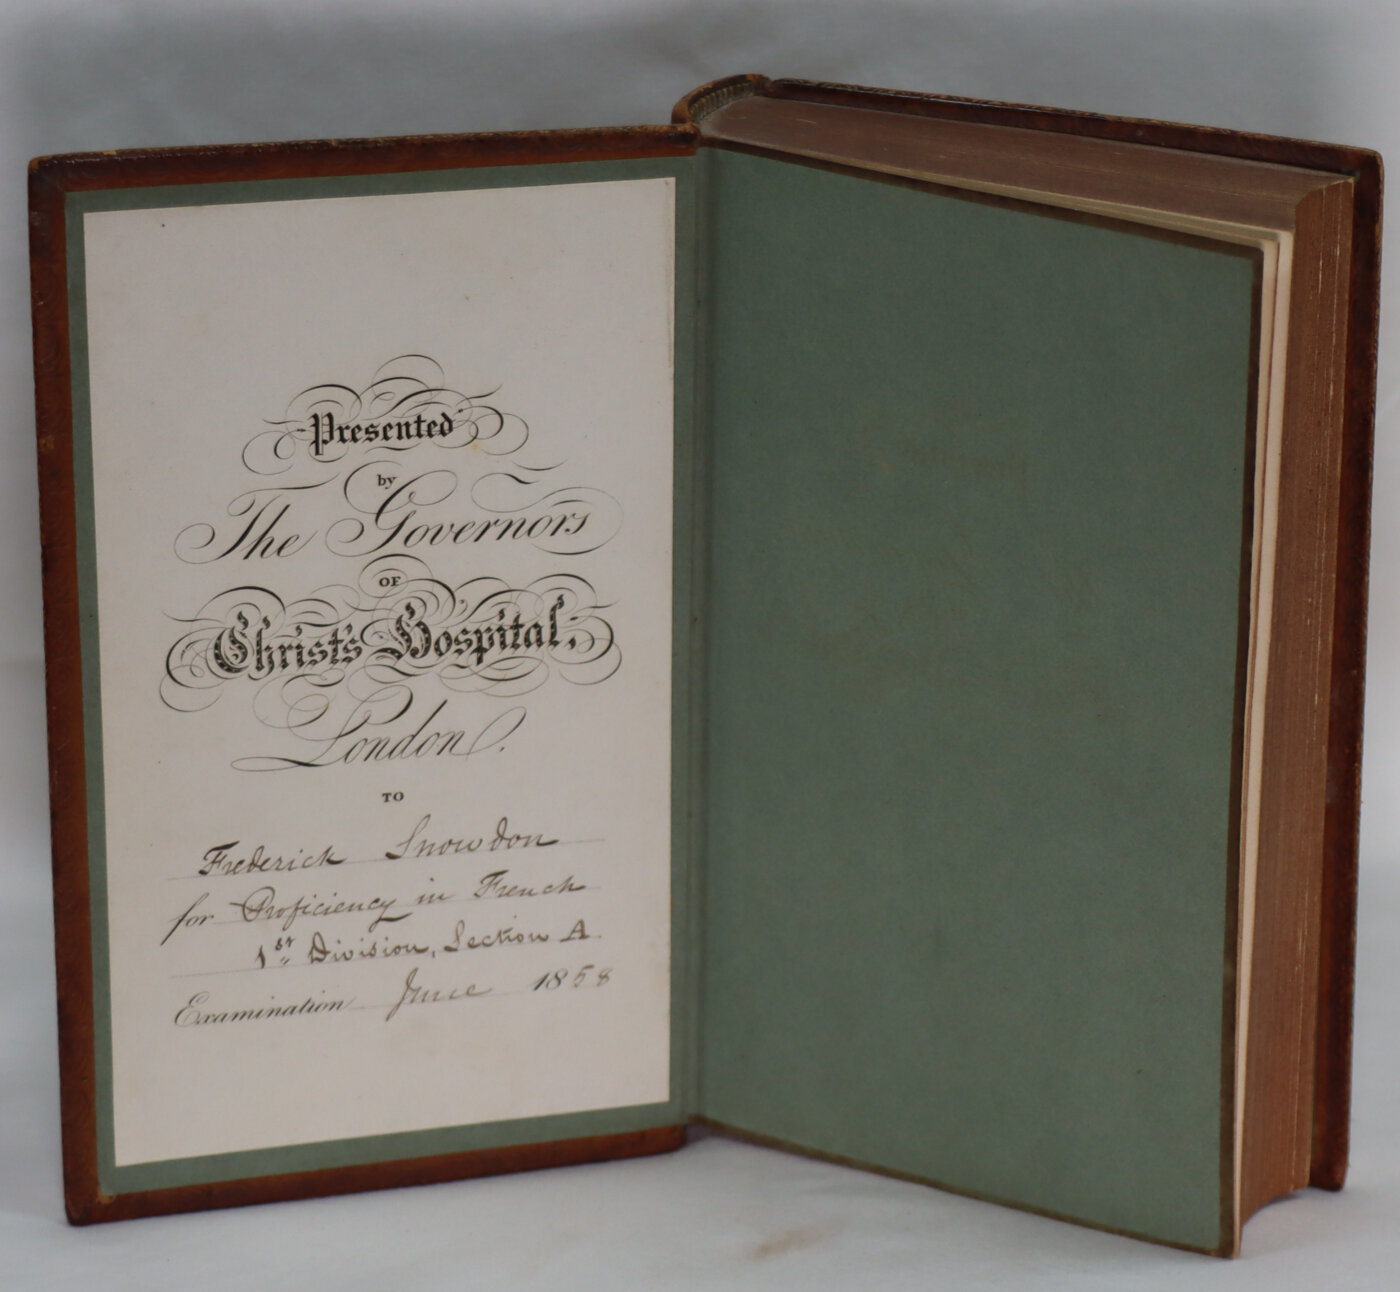 Presented
by
The Governors
OF
Christ's Hospital,
London.
TO
Frederick Snowdon
for Proficiency in French
1st Division, Section A.
Examination June 1858